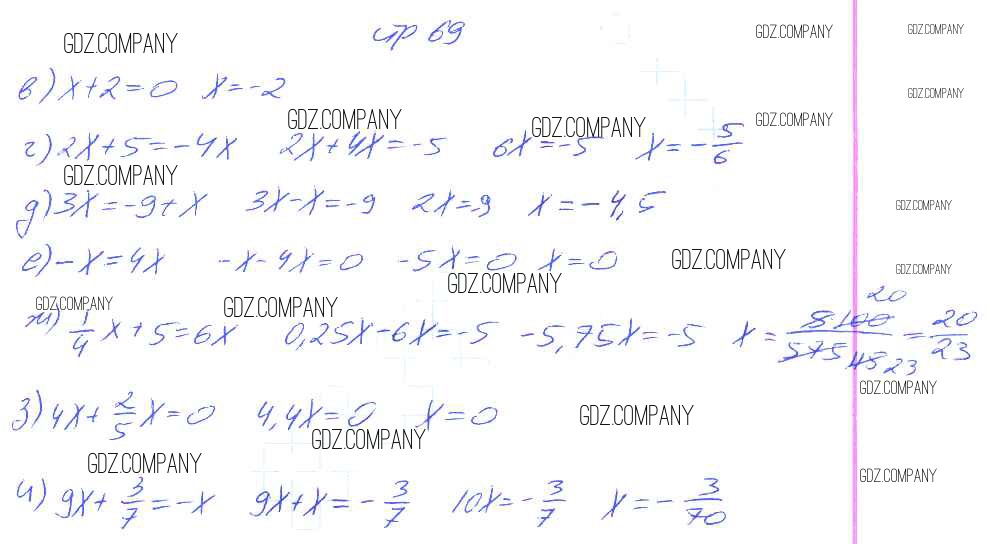 GDZ.COMPANY стр 69 GDZ.COMPANY GDZ.COMPANY
в) x+2=0 x=-2 GDZ.COMPANY
GDZ.COMPANY GDZ.COMPANY GDZ.COMPANY
г) 2x+5=-4x 2x+4x=-5 6x=-5 x=-5/6
GDZ.COMPANY
д) 3x=-9+x 3x-x=-9 2x=-9 x=-4,5 GDZ.COMPANY
е) -x=4x -x-4x=0 -5x=0 x=0 GDZ.COMPANY GDZ.COMPANY
GDZ.COMPANY GDZ.COMPANY GDZ.COMPANY
ж) 1/4 x+5=6x 0,25x-6x=-5 -5,75x=-5 x= 5 100 20 / 575 23 = 20/23
GDZ.COMPANY
з) 4x+2/5 x=0 4,4x=0 x=0 GDZ.COMPANY
GDZ.COMPANY
GDZ.COMPANY GDZ.COMPANY
и) 9x+3/7=-x 9x+x=-3/7 10x=-3/7 x=-3/70